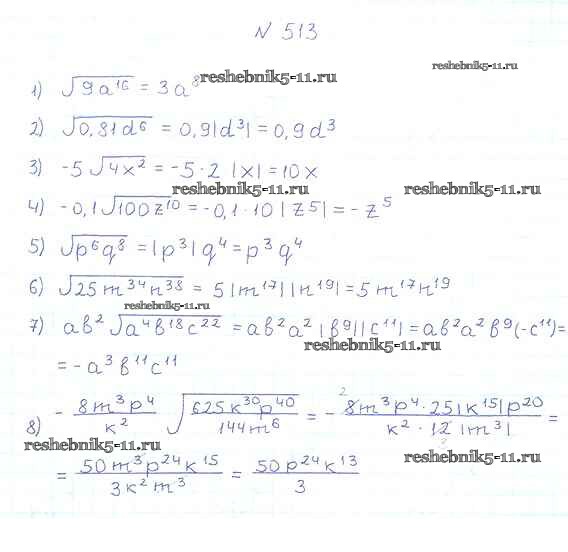 N 513
reshebnik5-11.ru
1) √9a¹⁶ = 3a⁸ reshebnik5-11.ru
2) √0,81d⁶ = 0,9|d³| = 0,9d³
3) -5√4x² = -5·2|x| = 10x
reshebnik5-11.ru reshebnik5-11.ru
4) -0,1√100z¹⁰ = -0,1·10|z⁵| = -z⁵
5) √p⁶q⁸ = |p³|q⁴ = p³q⁴
6) √25m³⁴n³⁸ = 5|m¹⁷||n¹⁹| = 5m¹⁷n¹⁹
reshebnik5-11.ru
7) ab²√a⁴b¹⁸c²² = ab²a²|b⁹||c¹¹| = ab²a²b⁹(-c¹¹) =
reshebnik5-11.ru
= -a³b¹¹c¹¹
8) - 8m³p⁴/k² √625k³⁰p⁴⁰/144m⁶ = - 8m³p⁴·25|k¹⁵|p²⁰/k²·12|m³| =
reshebnik5-11.ru
= 50m³p²⁴k¹⁵/3k²m³ = 50p²⁴k¹³/3
reshebnik5-11.ru